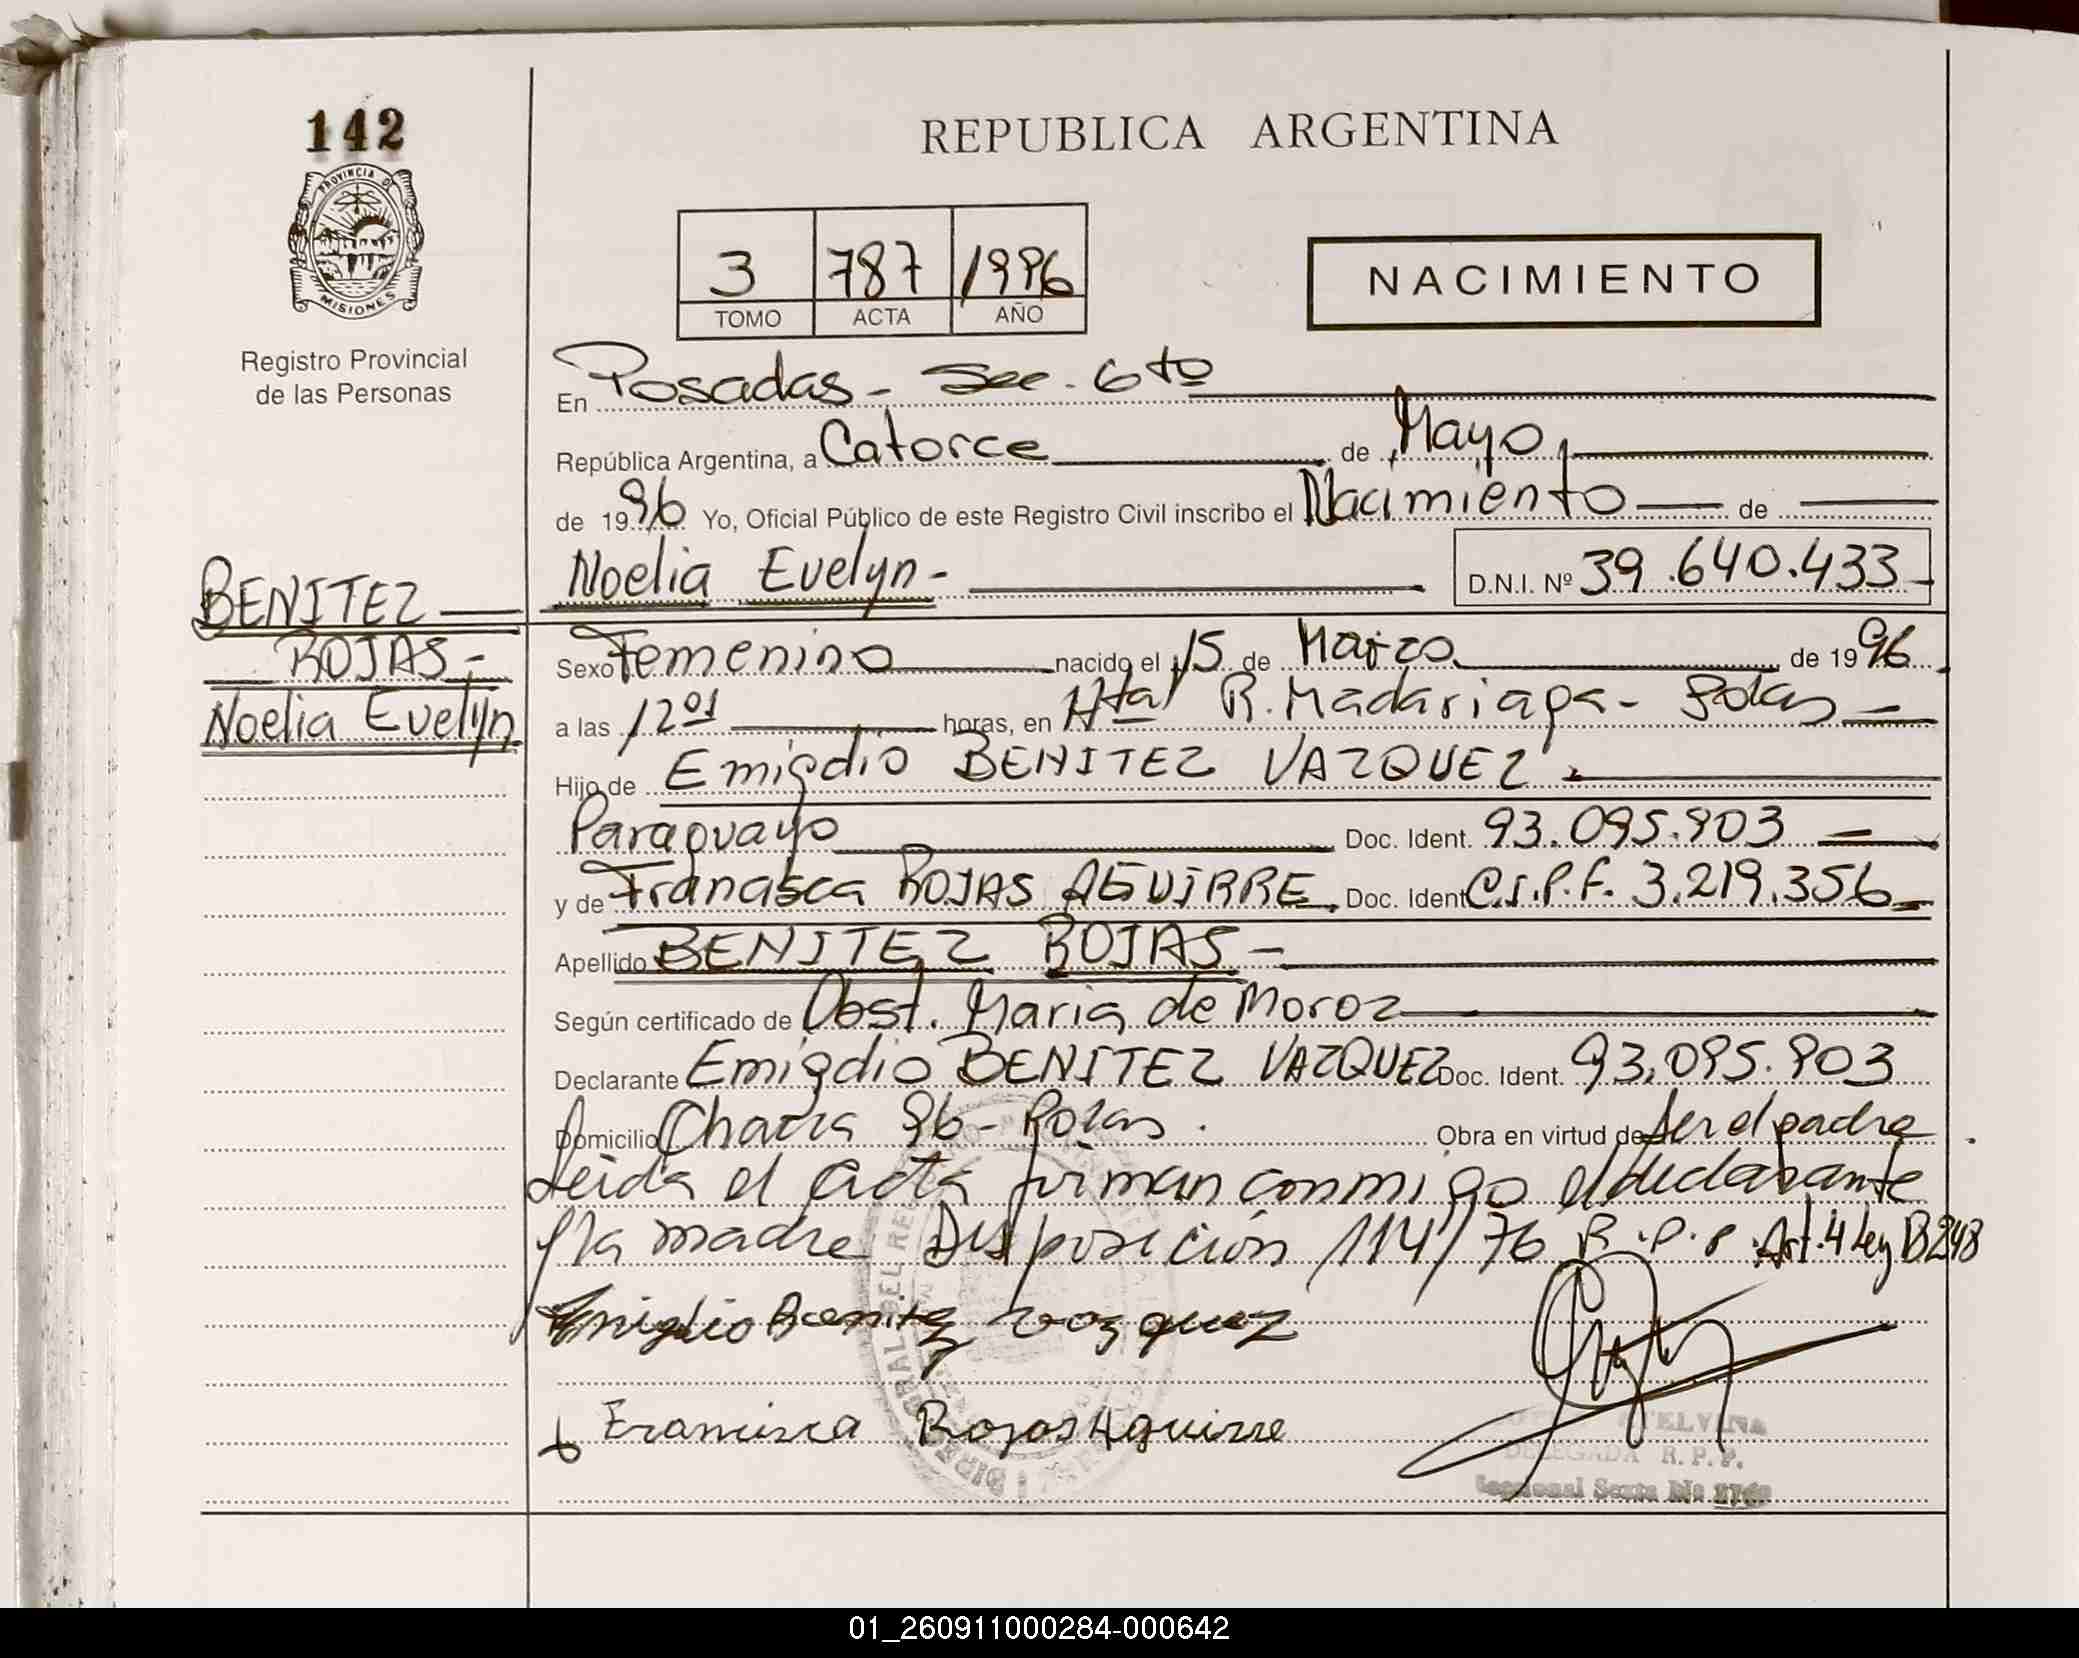 142
PROVINCIA DE
MISIONES
Registro Provincial
de las Personas
REPUBLICA ARGENTINA
3 787 1996
TOMO ACTA AÑO
NACIMIENTO
En Posadas - Sec. 6to
República Argentina, a Catorce de Mayo,
de 1996 Yo, Oficial Público de este Registro Civil inscribo el Nacimiento de
Noelia Evelyn - D.N.I. Nº 39.640.433
BENITEZ
ROJAS -
Noelia Evelyn
Sexo Femenino nacido el 15 de Marzo de 1996
a las 12 01 horas, en Htal R. Madariaga - Pdas
Hijo de Emigdio BENITEZ VAZQUEZ
Paraguayo Doc. Ident. 93.095.903
y de Francisca ROJAS AGUIRRE Doc. Ident C.I.P.F. 3.219.356
Apellido BENITEZ ROJAS -
Según certificado de Obst. Maria de Moroz
Declarante Emigdio BENITEZ VAZQUEZ Doc. Ident. 93.095.903
Domicilio Chacra 96 - Pdas. Obra en virtud de ser el padre
Leida el acta firman conmigo el declarante
y la madre Disposición 114/76 R.P.P. Art. 4 Ley 18248
Emigdio Benitez Vazquez
Francisca Rojas Aguirre
ATELVINA
DELEGADA R.P.P.
01_260911000284-000642